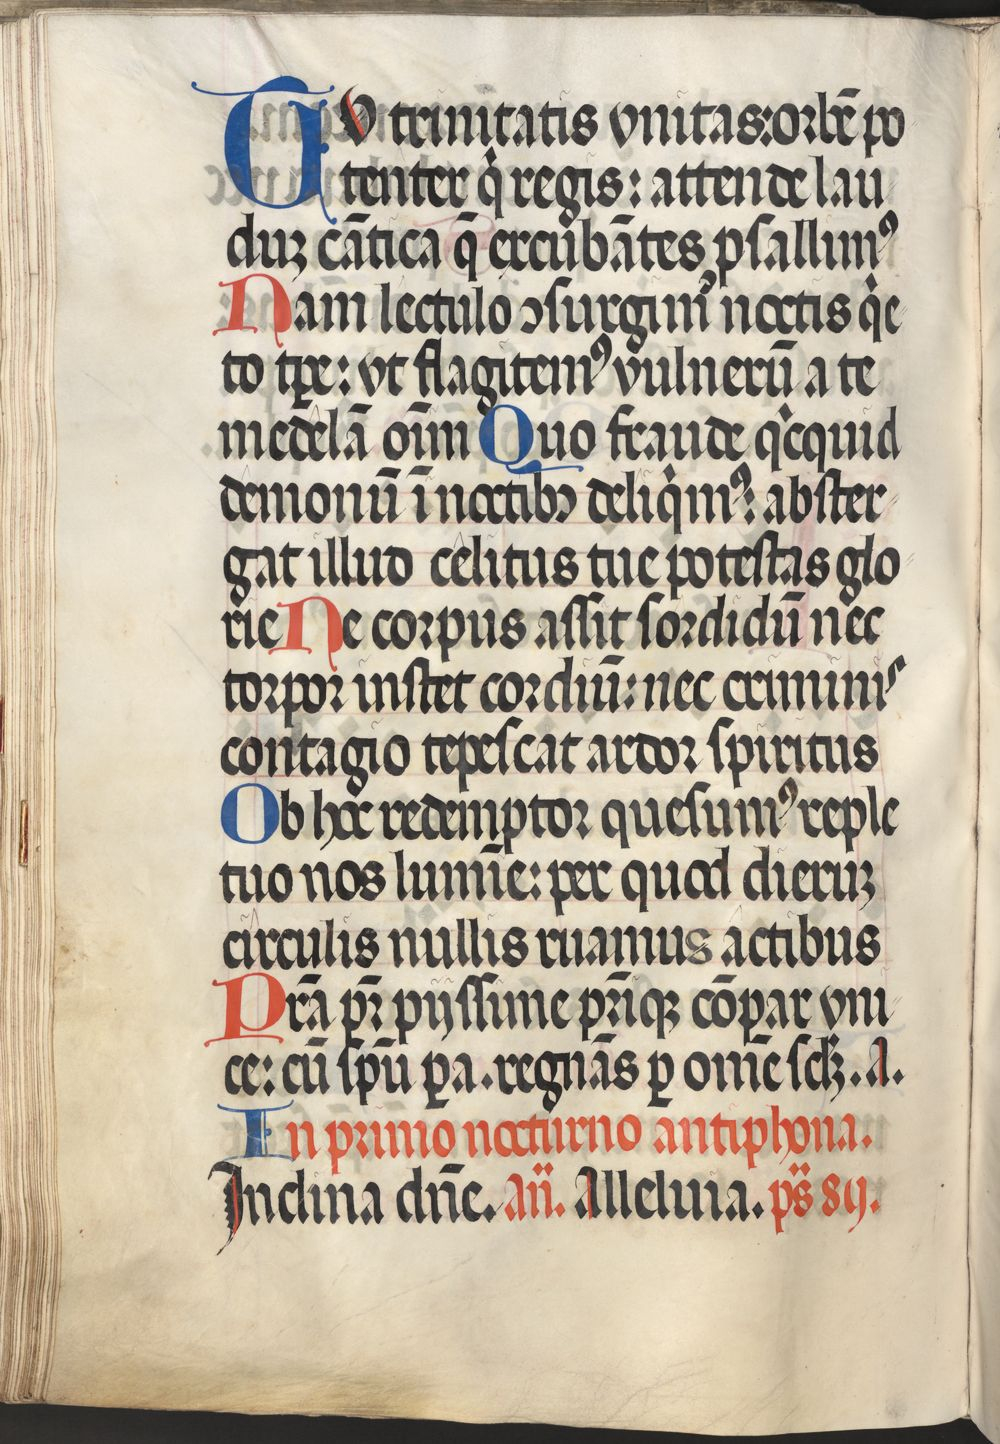 TV trinitatis vnitas: orbē po
tenter q̇ regis: attende lau
duꝫ cātica q̄ excubātes psallimꝰ
Nam lectulo ꝯsurgimꝰ noctis qͥe
to tꝑe: vt flagitemꝰ vulnerū a te
medelā oīm Quo fraude qͥcquid
demonū ī noctibꝫ deliqͥmꝰ: abster
gat illud celitus tue potestas glo
rie Ne corpus assit sordidū nec
torpor instet cordiū: nec criminiˢ
contagio tepescat ardor spiritus
Ob hoc redemptor quesumꝰ reple
tuo nos lumīe: per quod dieruꝫ
circulis nullis ruamus actibus
Prā pr̄ pijssime pr̄iqꝫ cōpar vni
ce: cū spū ꝑa. regnās ꝑ omē sclꝫ. A.
In primo nocturno antiphona.
Inclina dn̄e. An̄. Alleluia. ps̄ 89.